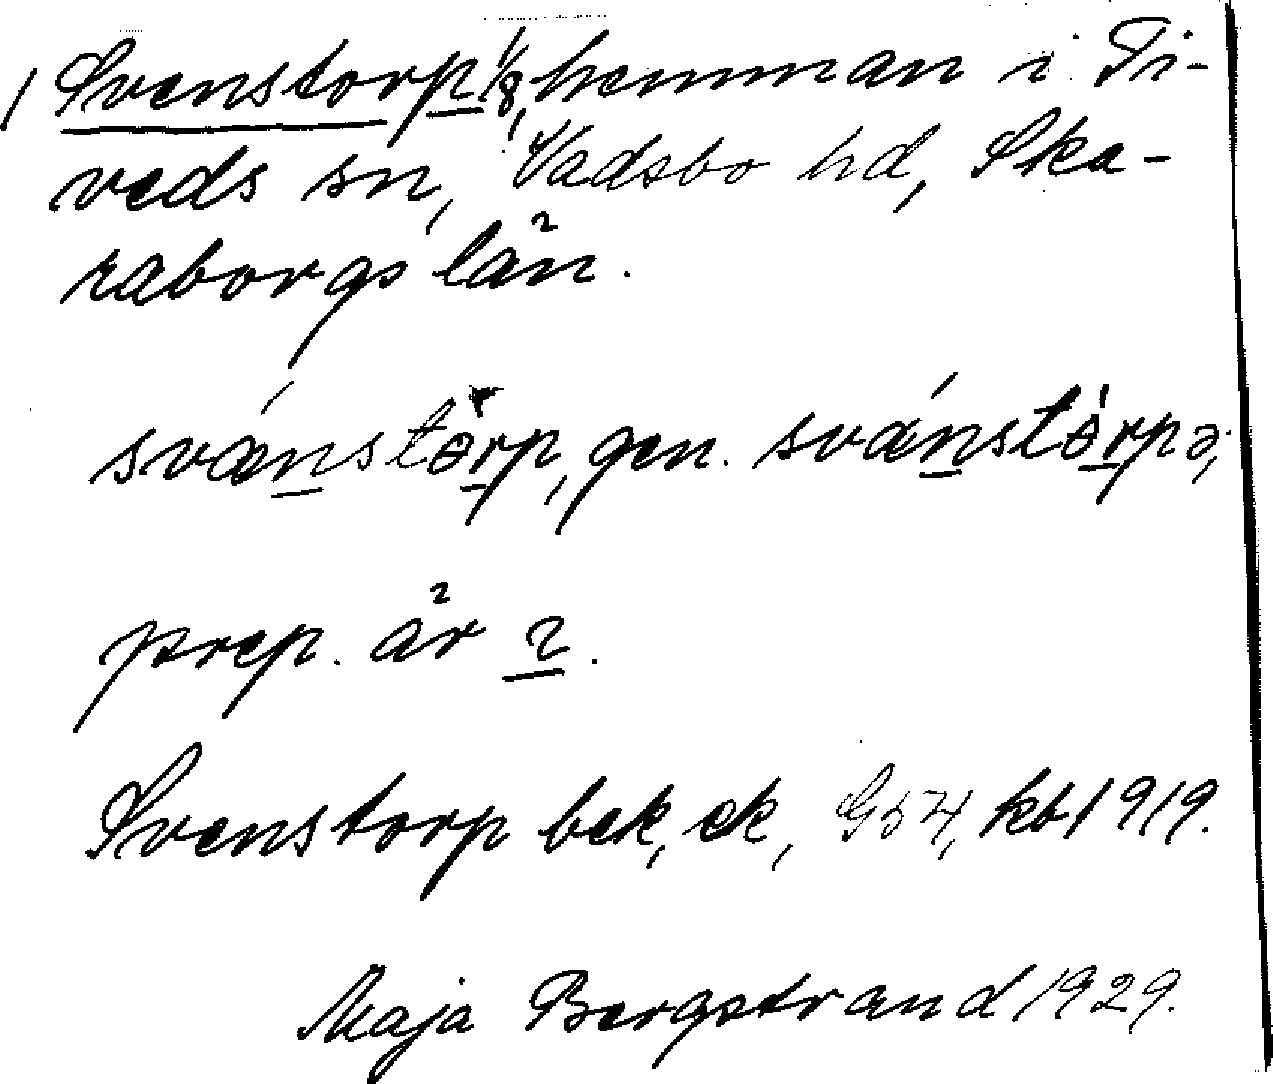 1 Svenstorp 1/8, hemman i Ti-
veds sn, Vadsbo hd, Ska-
raborgs län.
svánstòrp, gen. svánstòrpə,
prep. är ɩ.
Svenstorp bek, ek, G54, kb 1919.
Maja Bergstrand 1929.